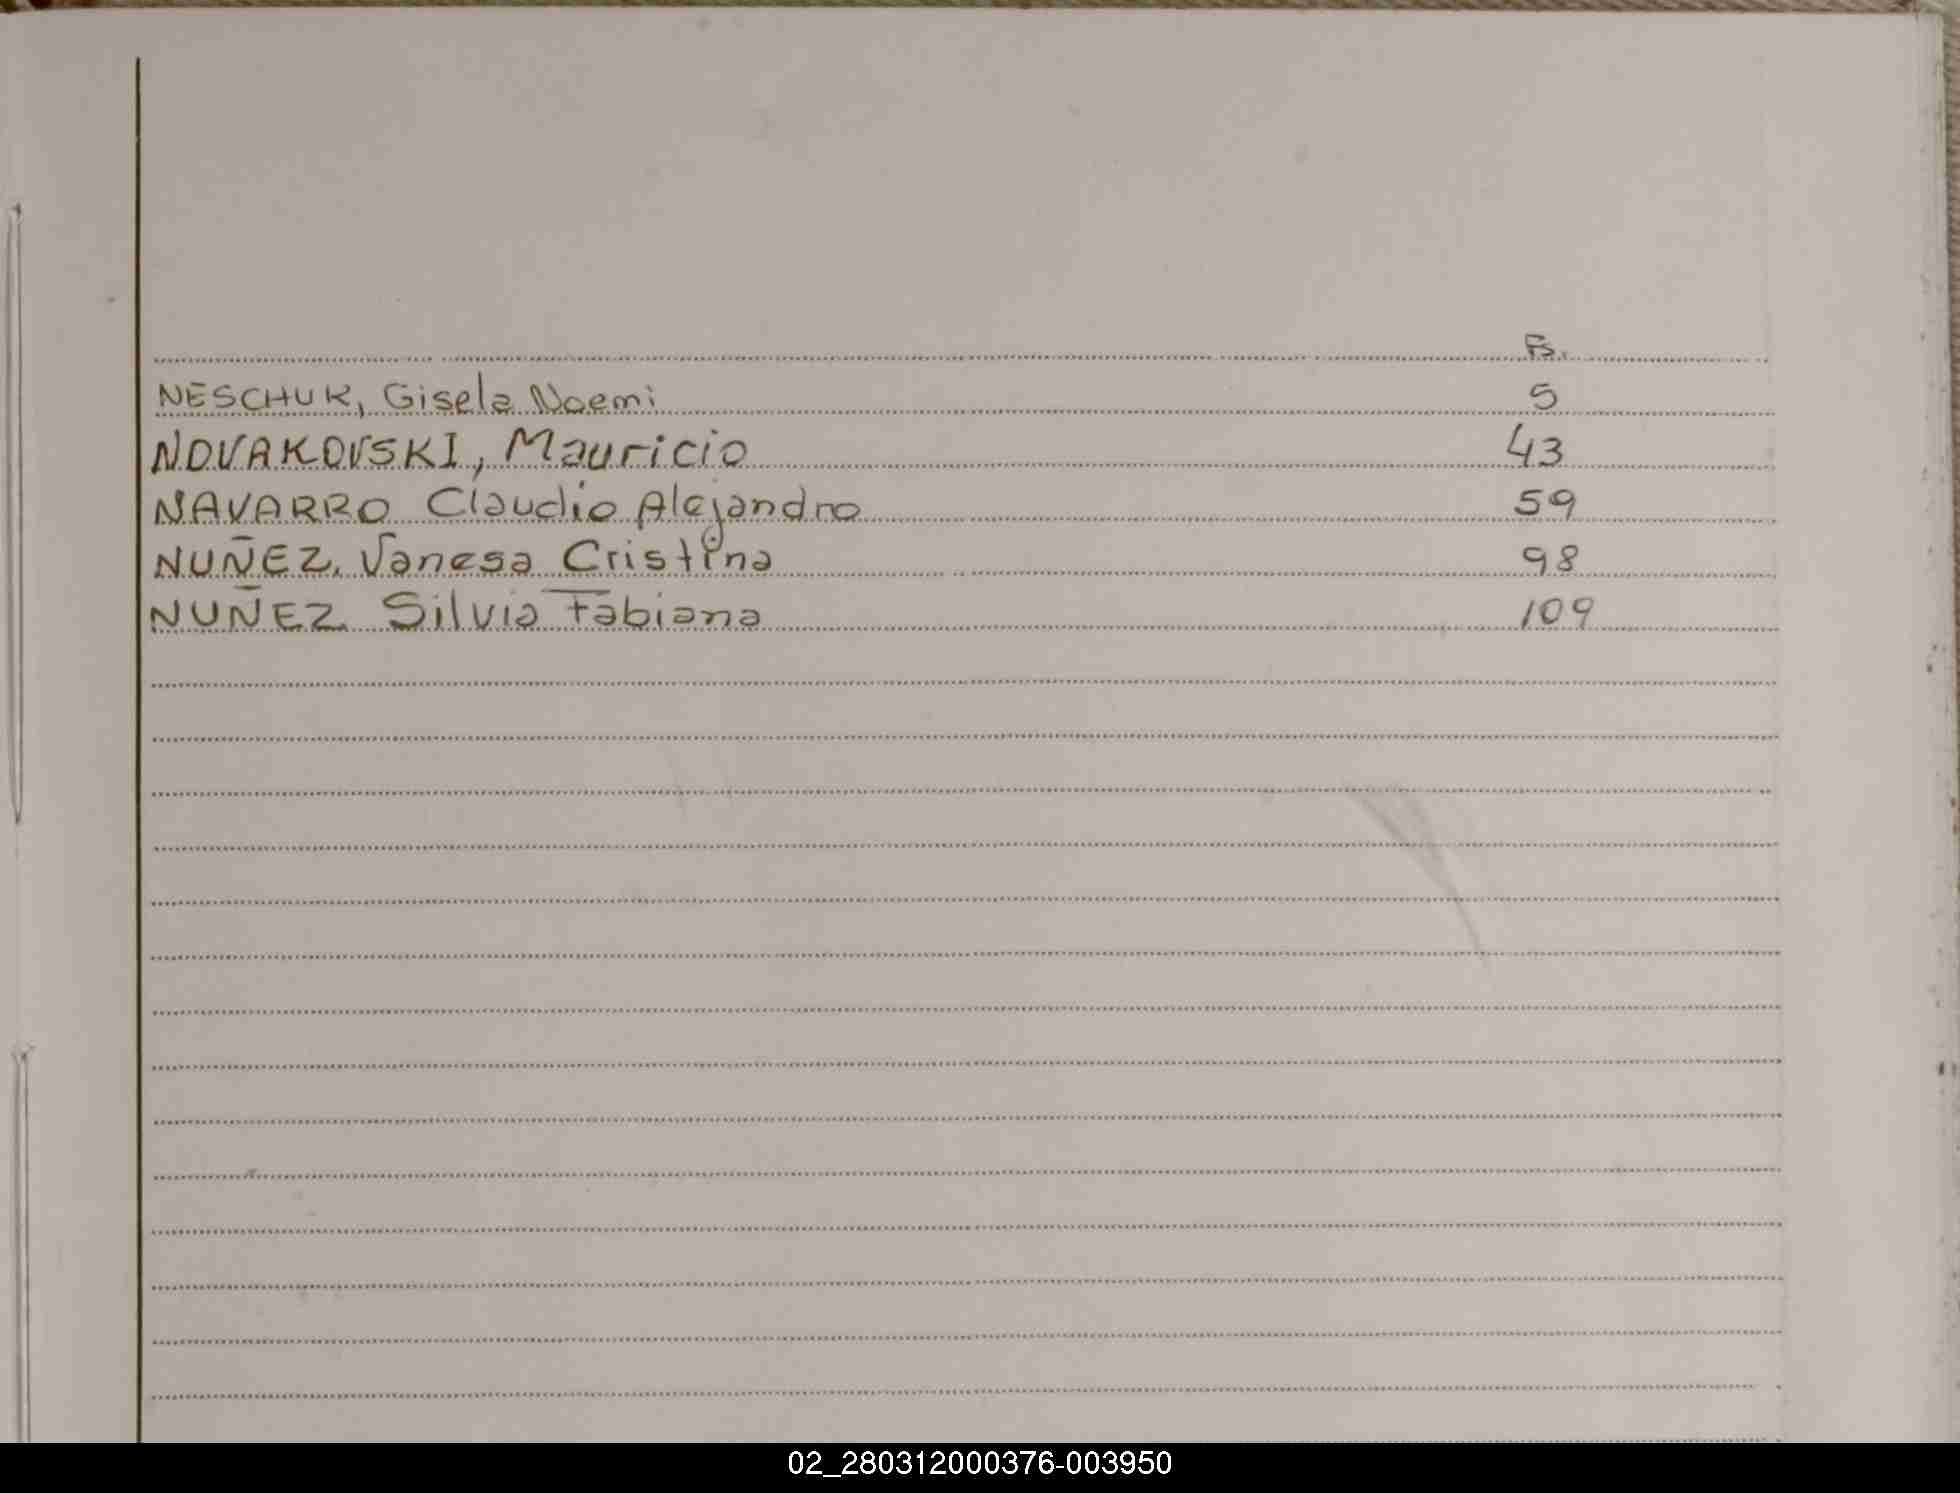 Fs.
NESCHUK, Gisela Noemi 5
NOVAKOVSKI, Mauricio 43
NAVARRO Claudio Alejandro 59
NUÑEZ, Vanesa Cristina 98
NUÑEZ Silvia Fabiana 109
02_280312000376-003950